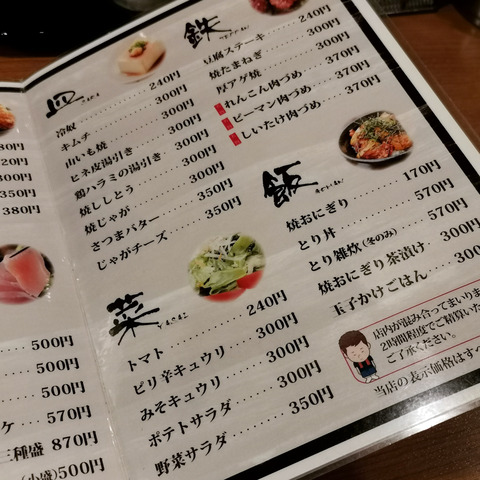 80円
20円
300円
350円
380円
500円
500円
500円
ケ 570円
三種盛 870円
(小盛)500円
皿
冷奴 240円
キムチ 300円
山いも焼 300円
ヒネ皮湯引き 300円
鶏ハラミの湯引き 300円
焼ししとう 300円
焼じゃが 300円
さつまバター 350円
じゃがチーズ 350円
菜
トマト 240円
ピリ辛キュウリ 300円
みそキュウリ 300円
ポテトサラダ 300円
野菜サラダ 350円
鉄
豆腐ステーキ 240円
焼たまねぎ 300円
厚アゲ焼 300円
れんこん肉づめ 370円
ピーマン肉づめ 370円
しいたけ肉づめ 370円
飯
焼おにぎり 170円
とり丼 570円
とり雑炊(冬のみ) 570円
焼おにぎり茶漬け 300円
玉子かけごはん 300円
店内が混み合ってまいりま
2時間程度でご精算いた
ご了承ください。
当店の表示価格はすべ